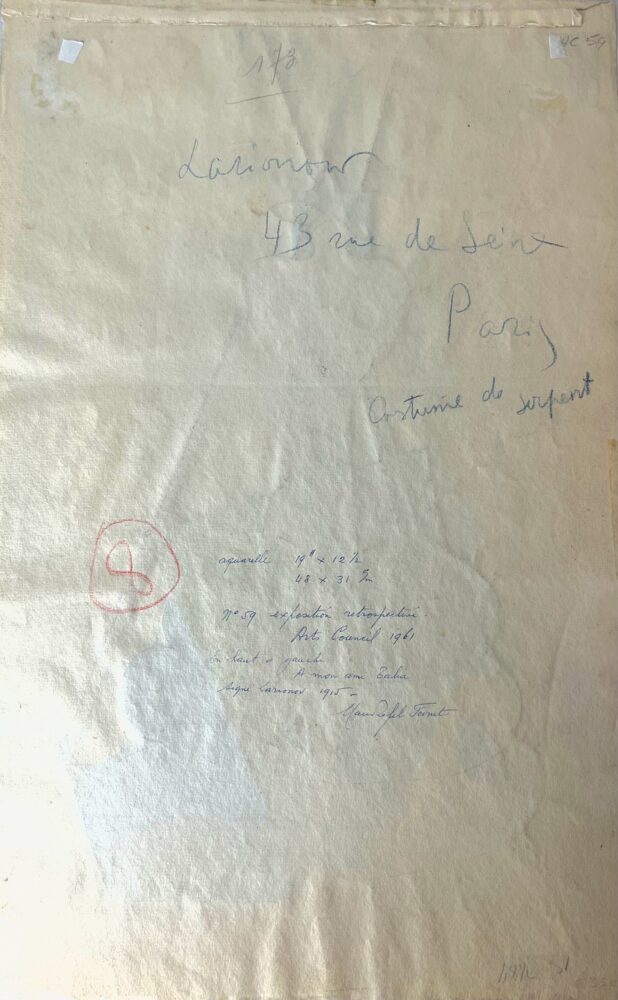 178
AC 59
Larionow
43 rue de Seine
Paris
Costume de serpent
8
aquarelle 19" x 12 ½
48 x 31 c/m
N° 59 exposition retrospective.
Arts Council 1961
En haut à gauche
A mon ami
signé Larionov 1915 -
48½ 31